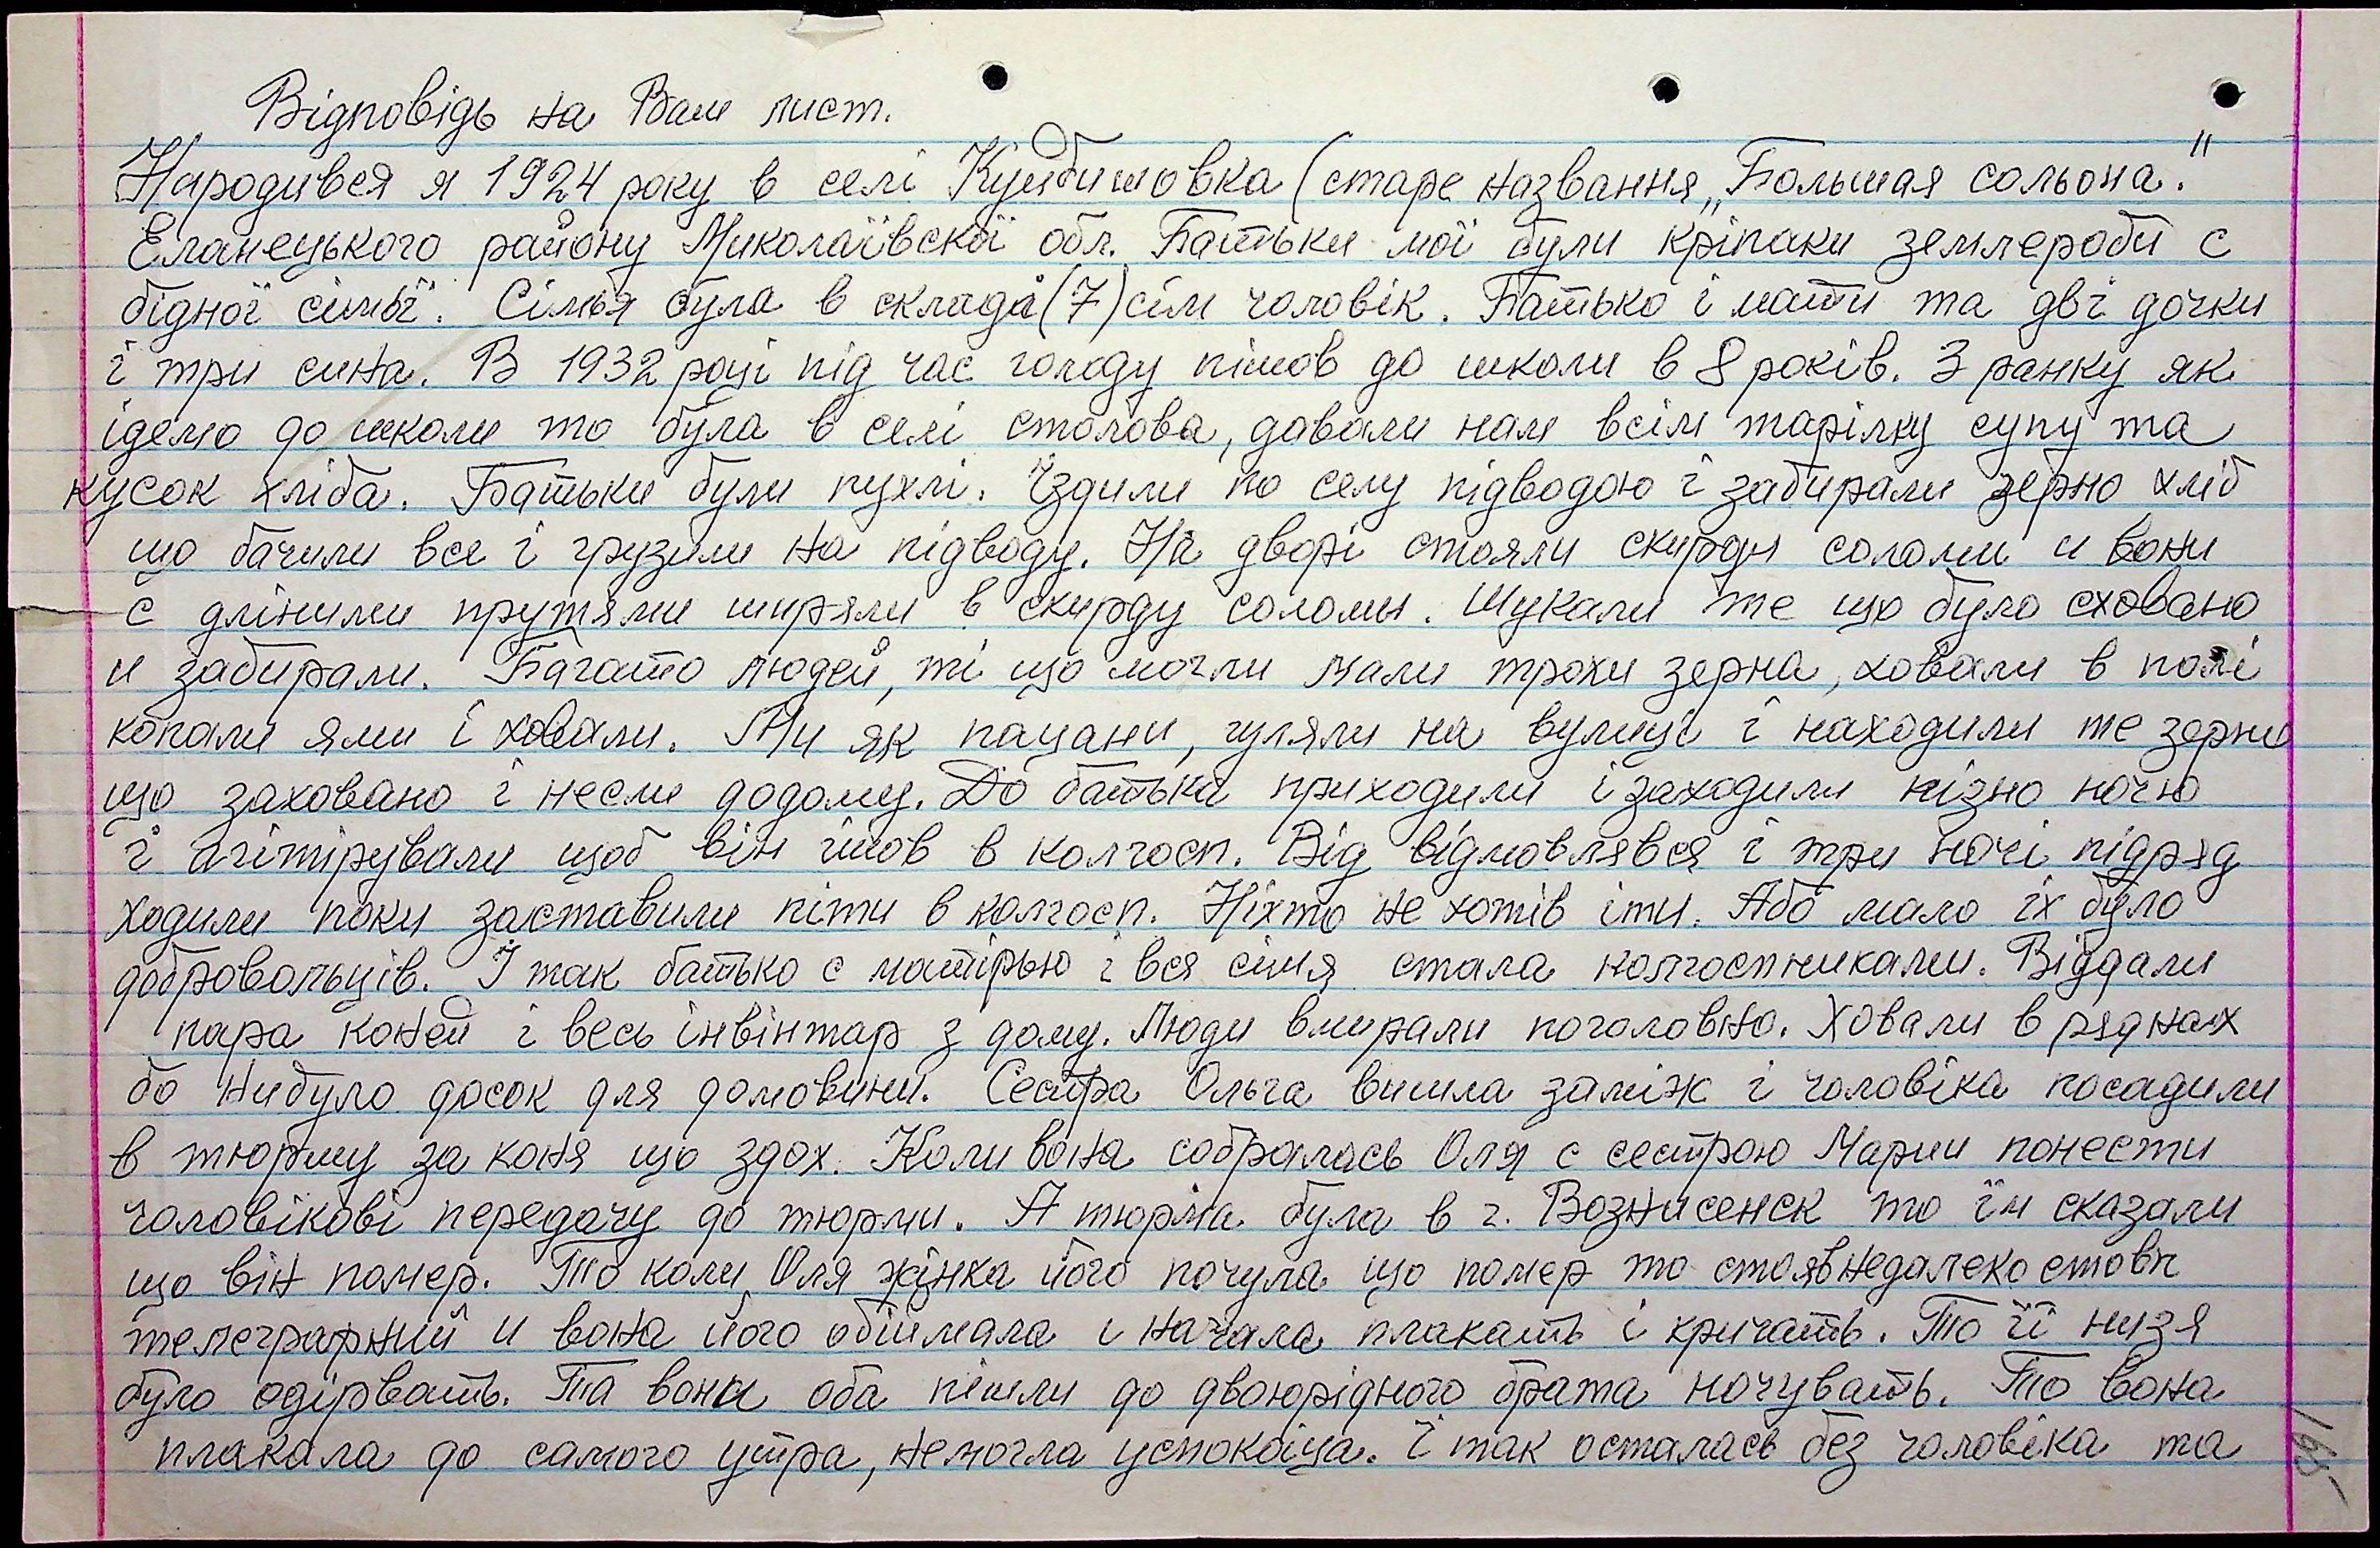 Відповідь на Ваш лист.
Народився я 1924 року в селі Куйбишовка (старе названня „Большая сольона."
Еланецького району Миколаївскої обл. Батьки мої були кріпаки землероби с
бідної сімьї. Сімья була в складі (7) сім чоловік. Батько і мати та дві дочки
і три сина. В 1932 році під час голоду пішов до школи в 8 років. З ранку як
ідемо до школи то була в селі столова, давали нам всім тарілку супу та
кусок хліба. Батьки були пухлі. Їздили по селу підводою і забирали зерно хліб
що бачили все і грузили на підводу. На дворі стояли скирди соломи и вони
с длінними прутями ширяли в скирду соломы. Шукали те що було сховано
и забирали. Багато людей, ті що могли мали трохи зерна, ховали в полі
копали ями і ховали. Ми як пацани, гуляли на вулиці і находили те зерно
що заховано і несли додому. До батька приходили і заходили пізно ночю
і агітірували щоб він ішов в колгосп. Від відмовлявся і три ночі підряд
ходили поки заставили піти в колгосп. Ніхто не хотів іти. Або мало їх було
добровольців. І так батько с матірью і вся сімя стала колгоспниками. Віддали
пара коней і весь інвінтар з дому. Люди вмирали поголовно. Ховали в ряднах
бо нибуло досок для домовини. Сестра Ольга вишла заміж і чоловіка посадили
в тюрму за коня що здох. Коли вона собралась Оля с сестрою Марии понести
чоловікові передачу до тюрми. А тюрма була в г. Вознисенск то їм сказали
що він помер. То коли Оля жінка його почула що помер то стояв недалеко стовп
телеграфний и вона його обіймала и начала плакать і кричать. То її низя
було одірвать. Та вони оба пішли до двоюрідного брата ночувать. То вона
плакала до самого утра, немогла успокоіца. І так осталась без чоловіка та
165